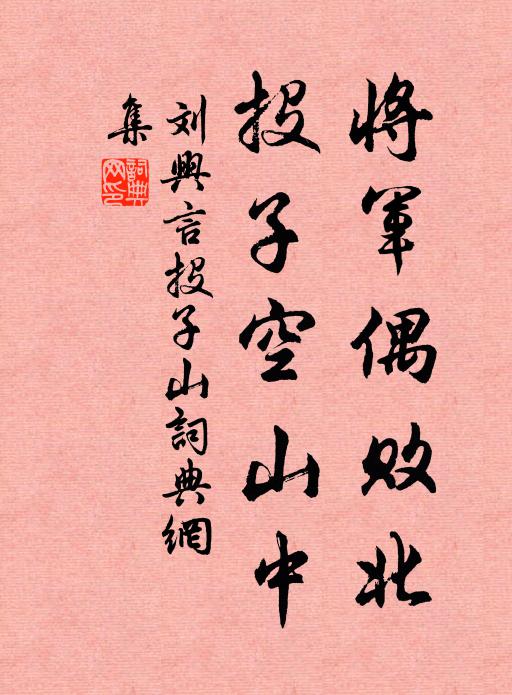 將軍偶败北
投子空山中
刘興言投子山詞典網
集
詞典网印